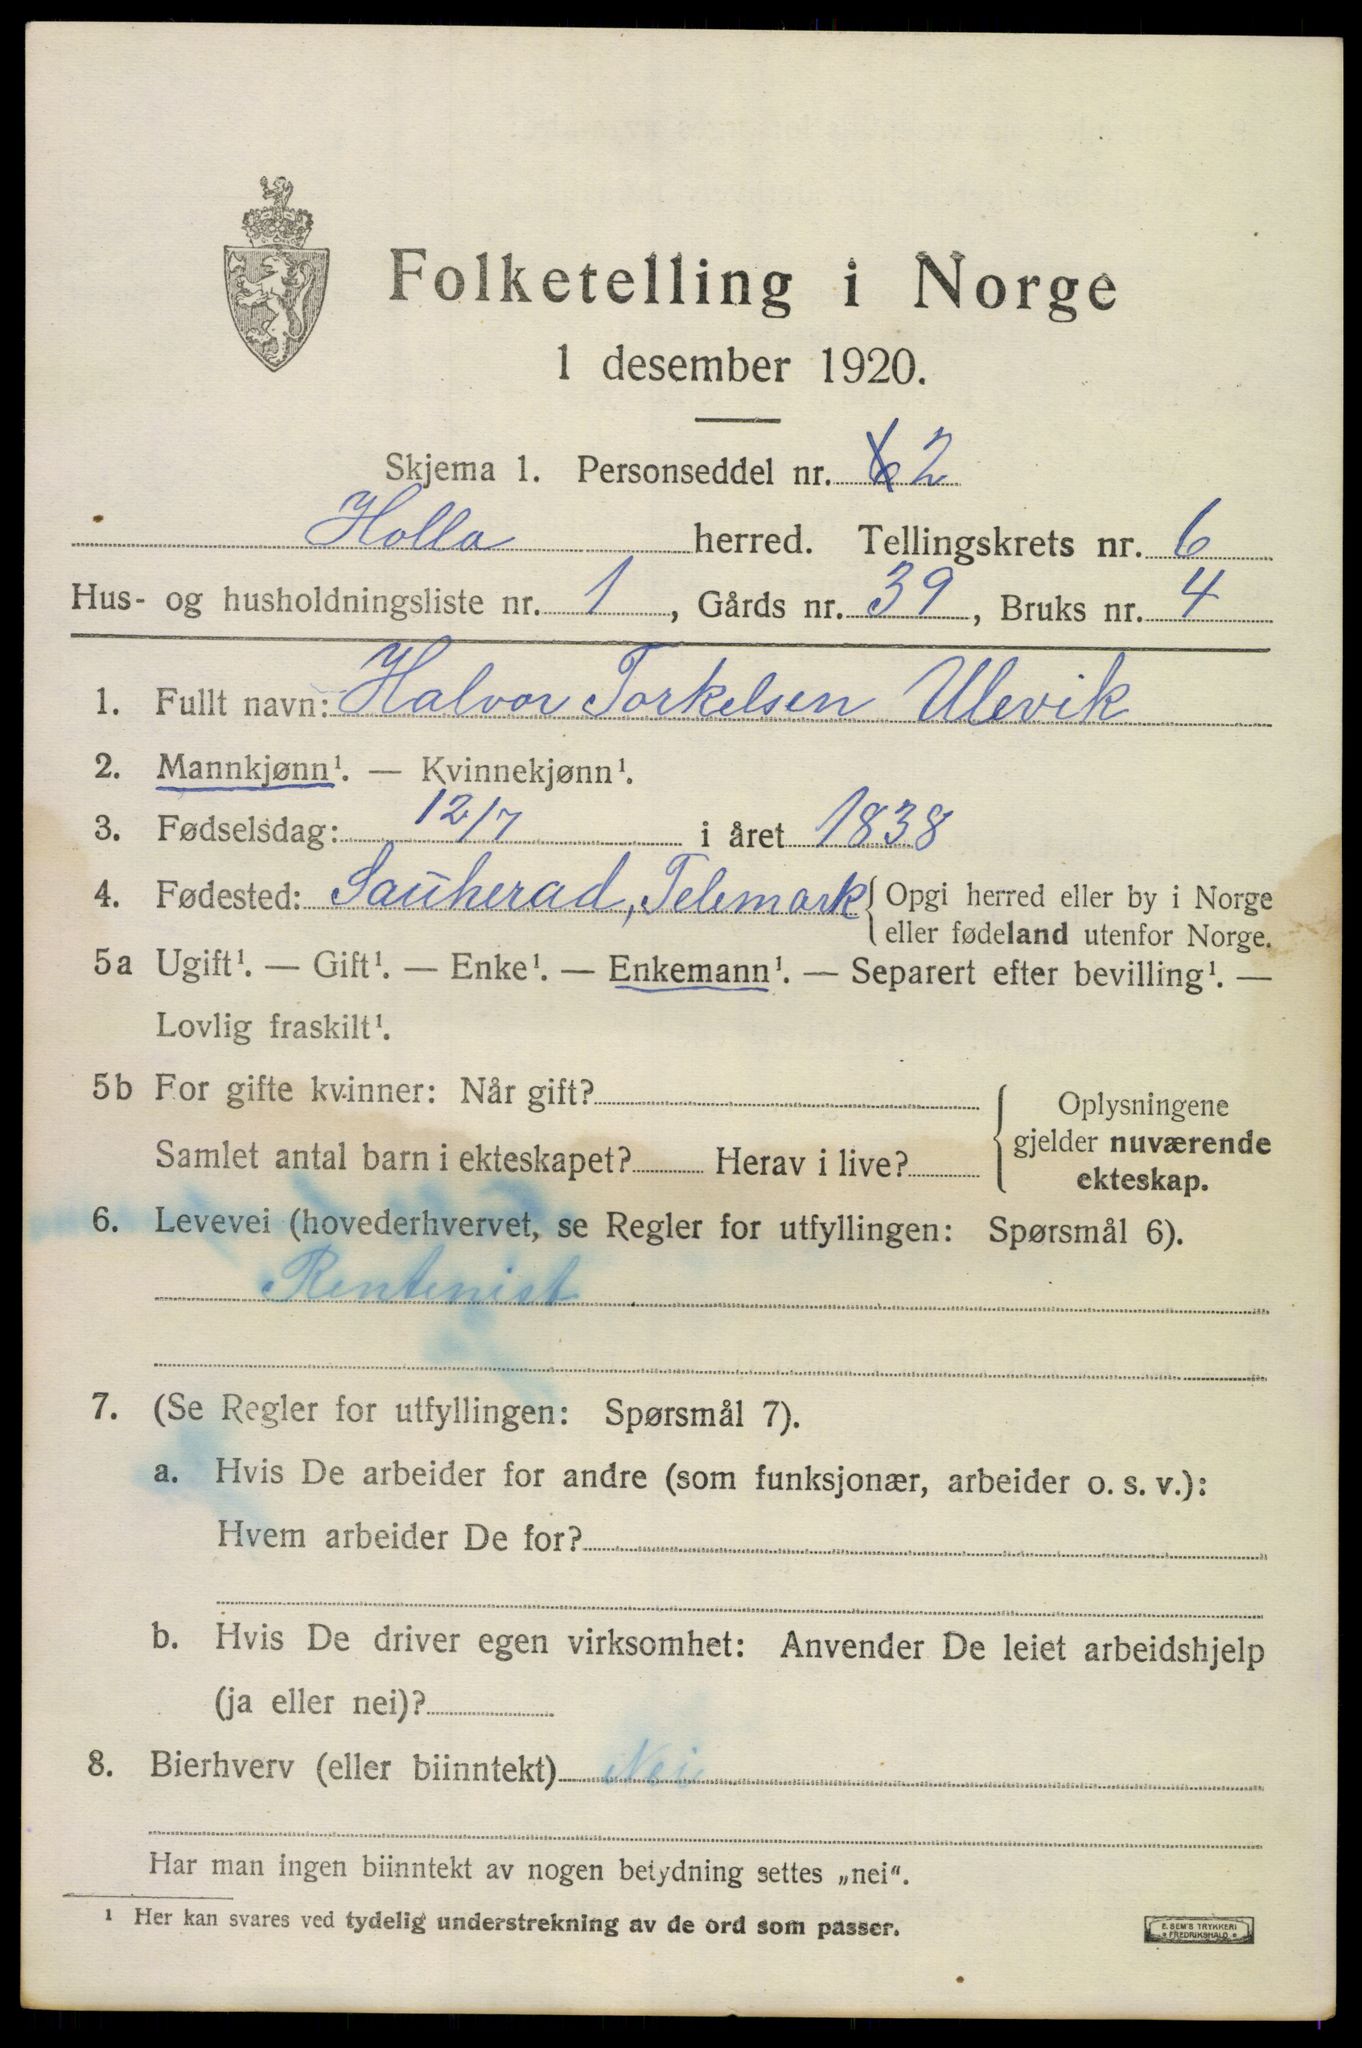 Folketelling i Norge
1 desember 1920.
Skjema 1. Personseddel nr. 6 2
Holla herred. Tellingskrets nr. 6
Hus- og husholdningsliste nr. 1, Gårds nr. 39, Bruks nr. 4
1. Fullt navn: Halvor Torkelsen Ulevik
2. Mannkjønn¹. — Kvinnekjønn¹.
3. Fødselsdag: 12/7 i året 1838
4. Fødested: Sauherad, Telemark { Opgi herred eller by i Norge
eller fødeland utenfor Norge.
5a Ugift¹. — Gift¹. — Enke¹. — Enkemann¹. — Separert efter bevilling¹. —
Lovlig fraskilt¹.
5b For gifte kvinner: Når gift? { Oplysningene
gjelder nuværende
Samlet antal barn i ekteskapet? Herav i live?
ekteskap.
6. Levevei (hovederhvervet, se Regler for utfyllingen: Spørsmål 6).
Rentenist
7. (Se Regler for utfyllingen: Spørsmål 7).
a. Hvis De arbeider for andre (som funksjonær, arbeider o. s. v.):
Hvem arbeider De for?
b. Hvis De driver egen virksomhet: Anvender De leiet arbeidshjelp
(ja eller nei)?
8. Bierhverv (eller biinntekt) Nei
Har man ingen biinntekt av nogen betydning settes „nei".
¹ Her kan svares ved tydelig understrekning av de ord som passer.
E. SEM'S TRYKKERI
FREDRIKSHALD